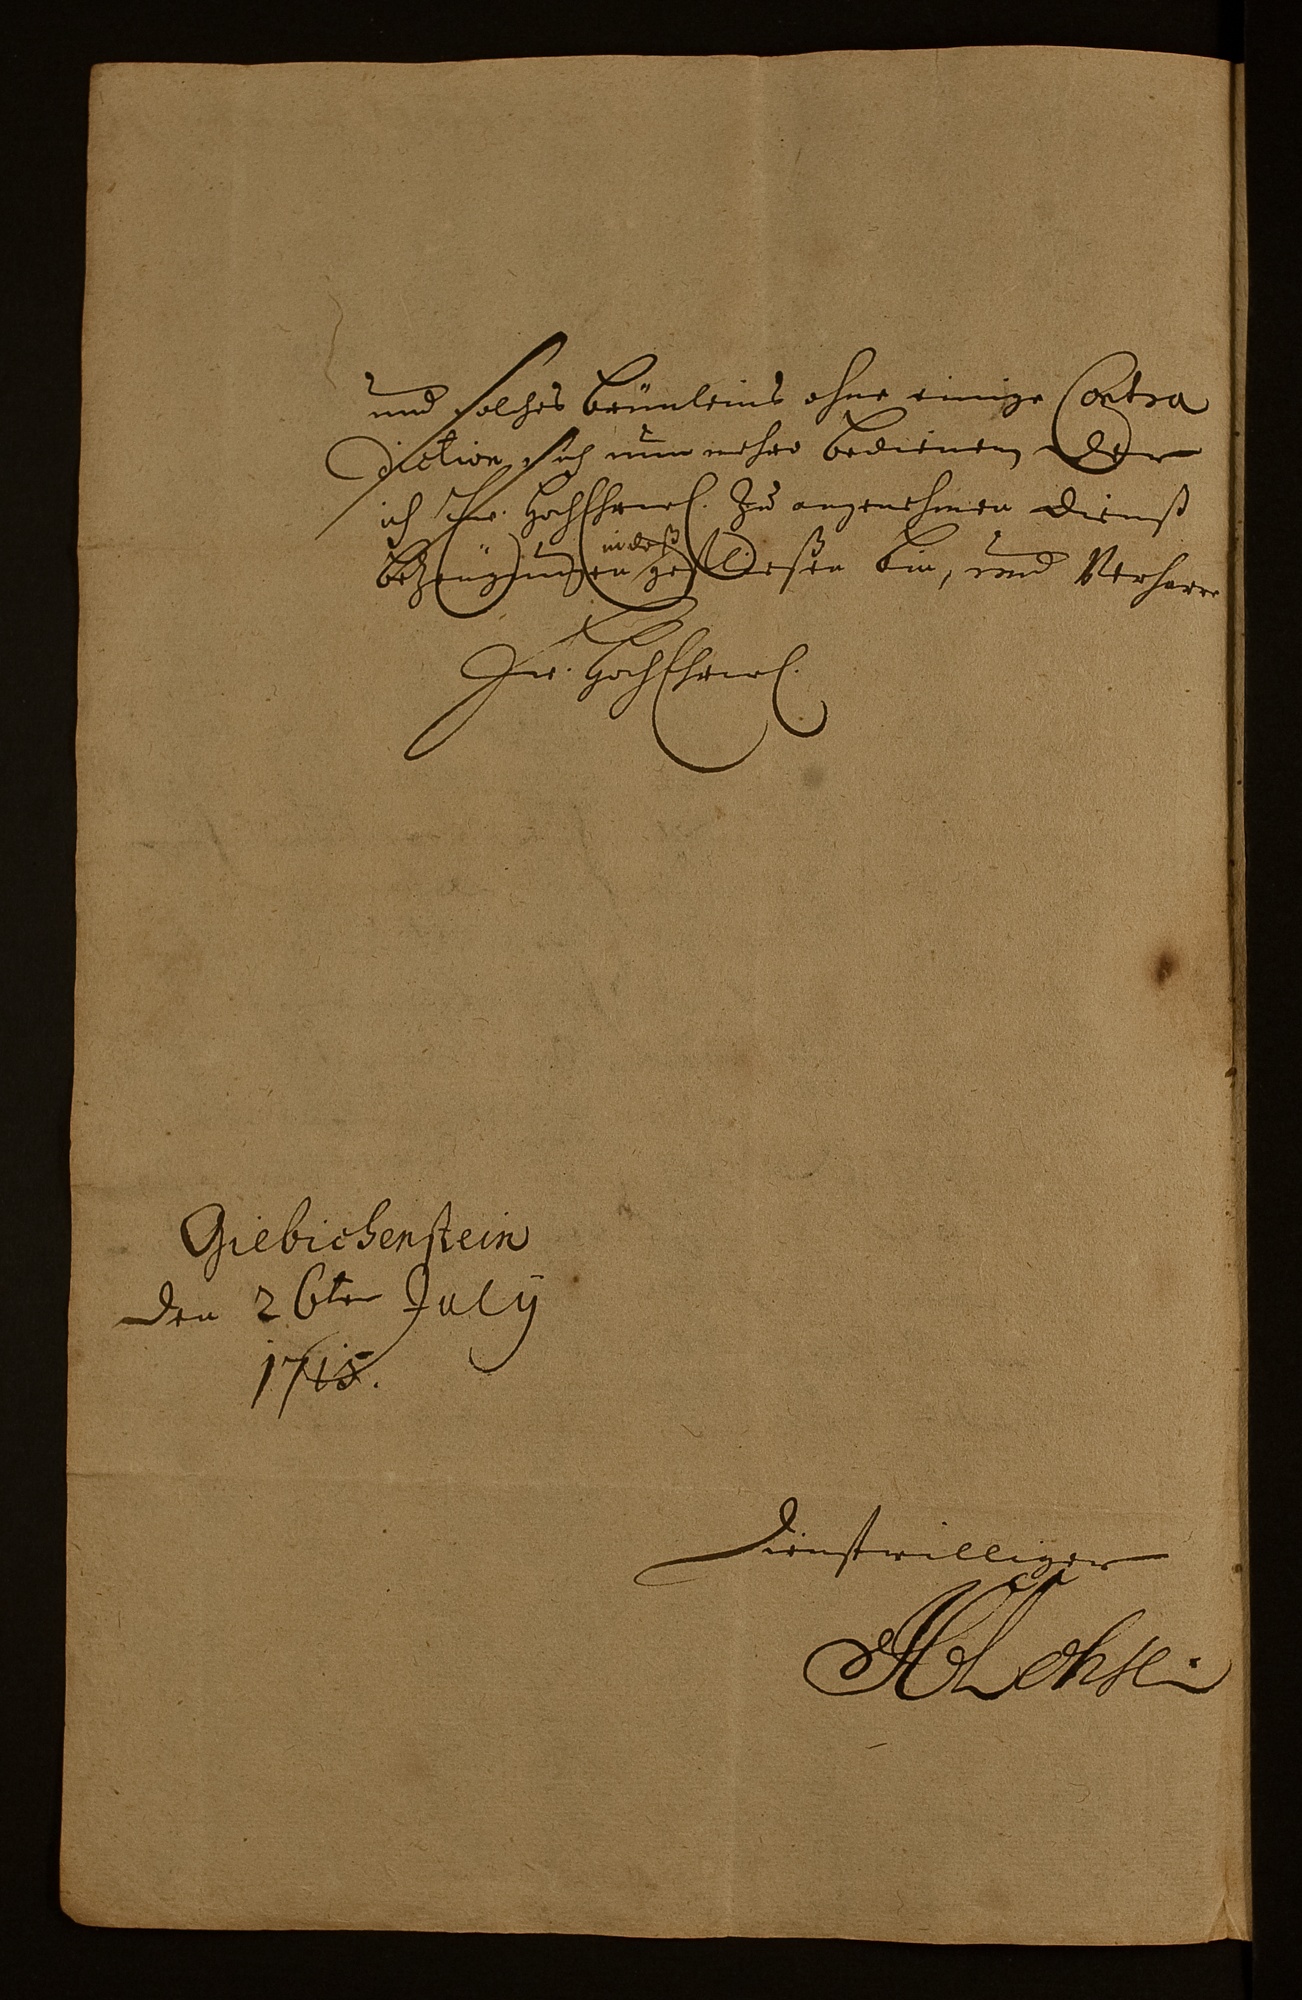 und solches Brünleins ohne einige Contra
diction sich nun mehro bedienen, der
ich Ew. HochEhrwl. zu angenehmen dienst
bezeügungen indeß gefließen bin, und Verharre
Ew. HochEhrwl.
Giebichenstein
den 26ten July
1715.
Dienstwilliger